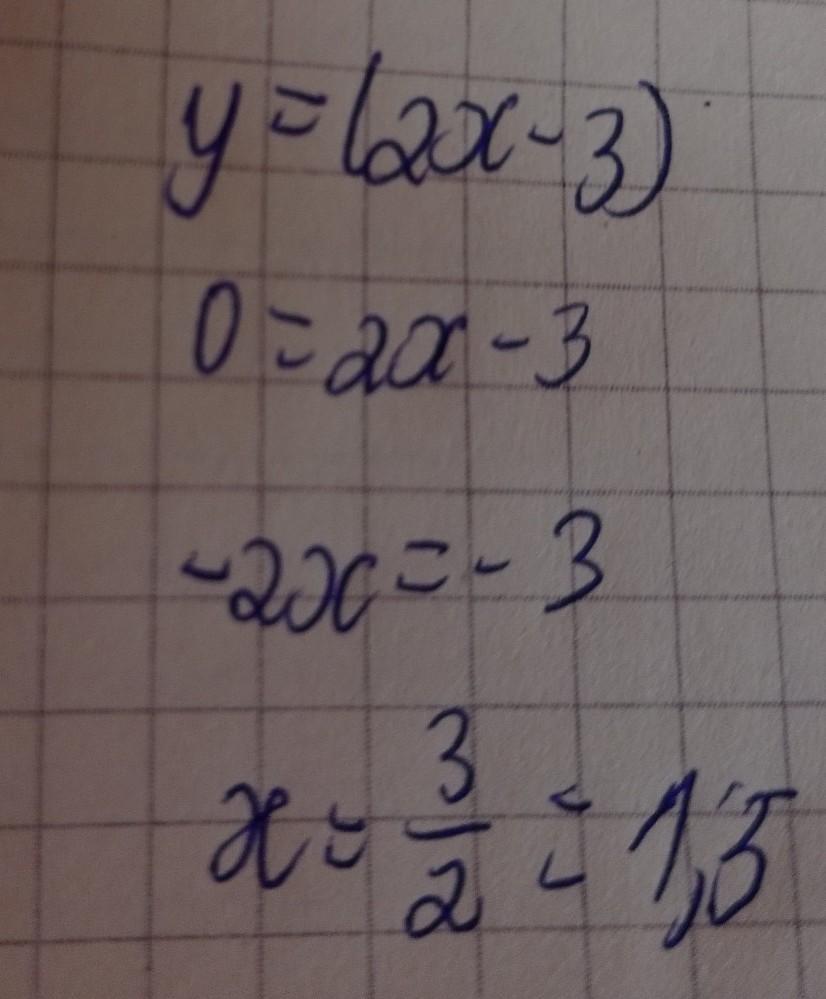 y = (2x - 3)
0 = 2x - 3
-2x = - 3
x = 3/2 = 1,5